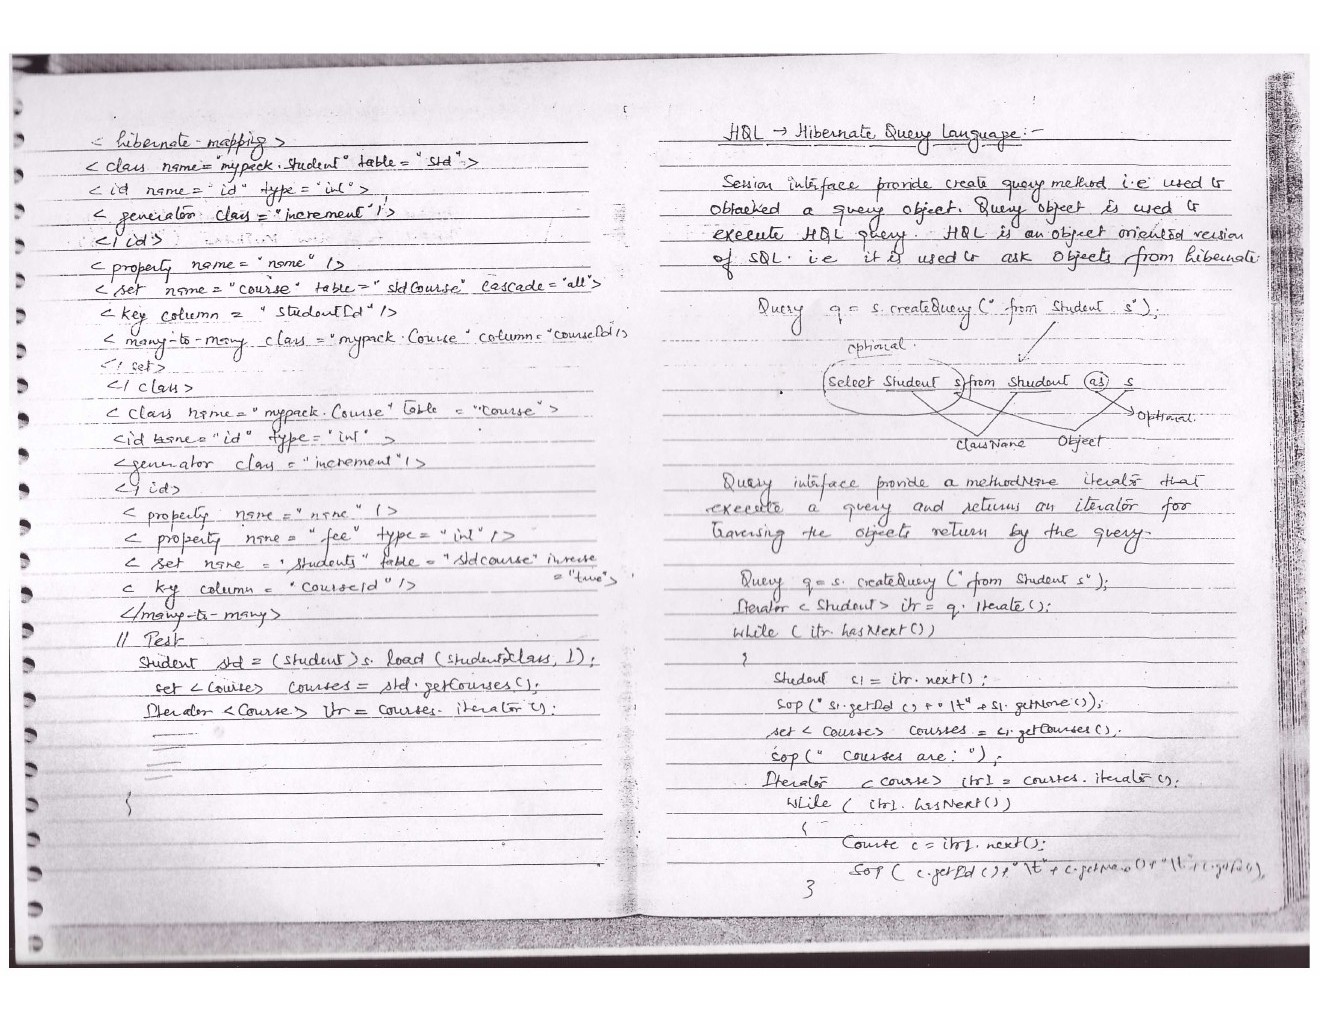 < hibernate-mapping>
< class name="mypack.Student" table="std">
< id name="id" type="int">
< generator class="increment"/>
</id>
< property name="name" />
< set name="course" table="stdCourse" cascade="all">
< key column = "studentId"/>
< many-to-many class="mypack.Course" column="courseId"/>
</set>
</class>
< class name="mypack.Course" table = "course">
<id name="id" type="int" >
<generator class="increment"/>
</id>
< property name="name" />
< property name= "fee" type="int"/>
< set name = "students" table="stdcourse" inverse
="true">
< key column= "CourseId"/>
</many-to-many>
// Test
Student std = (student)s.load (student.class, 1);
set <Course> courses = std.getCourses();
Iterator <Course> itr = courses.iterator();
}
HQL → Hibernate Query Language:-
Session interface provide create query method i.e used to
obtacked a query object. Query object is used to
execute HQL query. HQL is an object oriented version
of SQL. i.e it is used to ask objects from hibernate.
Query q = s.createQuery(" from Student s");
optional.
Select Student s from Student as s
optional.
ClassName Object
Query interface provide a methodName iterator that
execute a query and returns an iterator for
traversing the objects return by the query.
Query q= s.createQuery("from Student s");
Iterator < Student> itr = q.Iterate();
while ( itr.hasNext())
{
Student s1 = itr.next();
sop(" s1.getId()+"\t"+s1.getName());
set < Course> courses = s1.getCourses();
sop(" courses are: ");
Iterator <course> itr1 = courses.iterator();
while ( itr1.hasNext())
{
Course c = itr1.next();
sop( c.getId()+"\t"+c.getName()+"\t"+c.getFee());
}